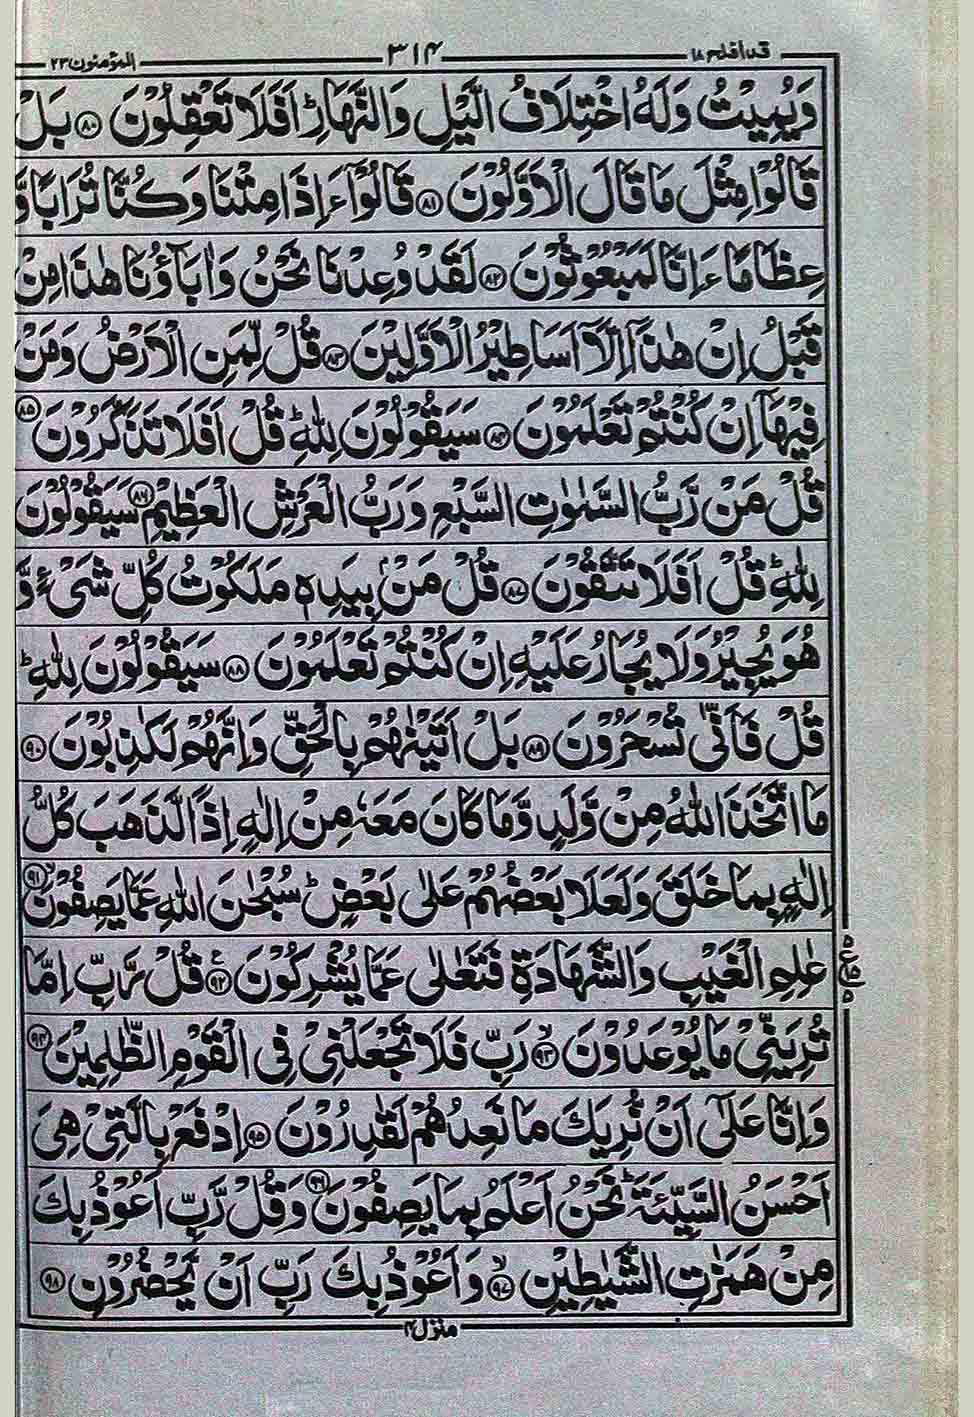 قد افلح ۱۸ ۳۱۴ المؤمنون ۲۳
وَيُمِيْتُ وَلَهُ اخْتِلَافُ الَّيْلِ وَالنَّهَارِ ؕ اَفَلَا تَعْقِلُوْنَ ﴿۸۰﴾ بَلْ
قَالُوْا مِثْلَ مَا قَالَ الْاَوَّلُوْنَ ﴿۸۱﴾ قَالُوْۤا ءَاِذَا مِتْنَا وَكُنَّا تُرَابًا وَّ
عِظَامًا ءَاِنَّا لَمَبْعُوْثُوْنَ ﴿۸۲﴾ لَقَدْ وُعِدْنَا نَحْنُ وَاٰبَآؤُنَا هٰذَا مِنْ
قَبْلُ اِنْ هٰذَاۤ اِلَّاۤ اَسَاطِيْرُ الْاَوَّلِيْنَ ﴿۸۳﴾ قُلْ لِّمَنِ الْاَرْضُ وَمَنْ
فِيْهَاۤ اِنْ كُنْتُمْ تَعْلَمُوْنَ ﴿۸۴﴾ سَيَقُوْلُوْنَ لِلّٰهِ ؕ قُلْ اَفَلَا تَذَكَّرُوْنَ ﴿۸۵﴾
قُلْ مَنْ رَّبُّ السَّمٰوٰتِ السَّبْعِ وَرَبُّ الْعَرْشِ الْعَظِيْمِ ﴿۸۶﴾ سَيَقُوْلُوْنَ
لِلّٰهِ ؕ قُلْ اَفَلَا تَتَّقُوْنَ ﴿۸۷﴾ قُلْ مَنْۢ بِيَدِهٖ مَلَكُوْتُ كُلِّ شَیْءٍ وَّ
هُوَ يُجِيْرُ وَلَا يُجَارُ عَلَيْهِ اِنْ كُنْتُمْ تَعْلَمُوْنَ ﴿۸۸﴾ سَيَقُوْلُوْنَ لِلّٰهِ ؕ
قُلْ فَاَنّٰی تُسْحَرُوْنَ ﴿۸۹﴾ بَلْ اَتَيْنٰهُمْ بِالْحَقِّ وَاِنَّهُمْ لَكٰذِبُوْنَ ﴿۹۰﴾
مَا اتَّخَذَ اللّٰهُ مِنْ وَّلَدٍ وَّمَا كَانَ مَعَهٗ مِنْ اِلٰهٍ اِذًا لَّذَهَبَ كُلُّ
اِلٰهٍۭ بِمَا خَلَقَ وَلَعَلَا بَعْضُهُمْ عَلٰی بَعْضٍ ؕ سُبْحٰنَ اللّٰهِ عَمَّا يَصِفُوْنَ ۙ﴿۹۱﴾
عٰلِمِ الْغَيْبِ وَالشَّهَادَةِ فَتَعٰلٰی عَمَّا يُشْرِكُوْنَ ﴿۹۲﴾ قُلْ رَّبِّ اِمَّا
تُرِيَنِّیْ مَا يُوْعَدُوْنَ ۙ﴿۹۳﴾ رَبِّ فَلَا تَجْعَلْنِیْ فِی الْقَوْمِ الظّٰلِمِيْنَ ﴿۹۴﴾
وَاِنَّا عَلٰۤی اَنْ نُّرِيَكَ مَا نَعِدُهُمْ لَقٰدِرُوْنَ ﴿۹۵﴾ اِدْفَعْ بِالَّتِیْ هِیَ
اَحْسَنُ السَّيِّئَةَ ؕ نَحْنُ اَعْلَمُ بِمَا يَصِفُوْنَ ﴿۹۶﴾ وَقُلْ رَّبِّ اَعُوْذُ بِكَ
مِنْ هَمَزٰتِ الشَّيٰطِيْنِ ۙ﴿۹۷﴾ وَاَعُوْذُ بِكَ رَبِّ اَنْ يَّحْضُرُوْنِ ﴿۹۸﴾
منزل ۴